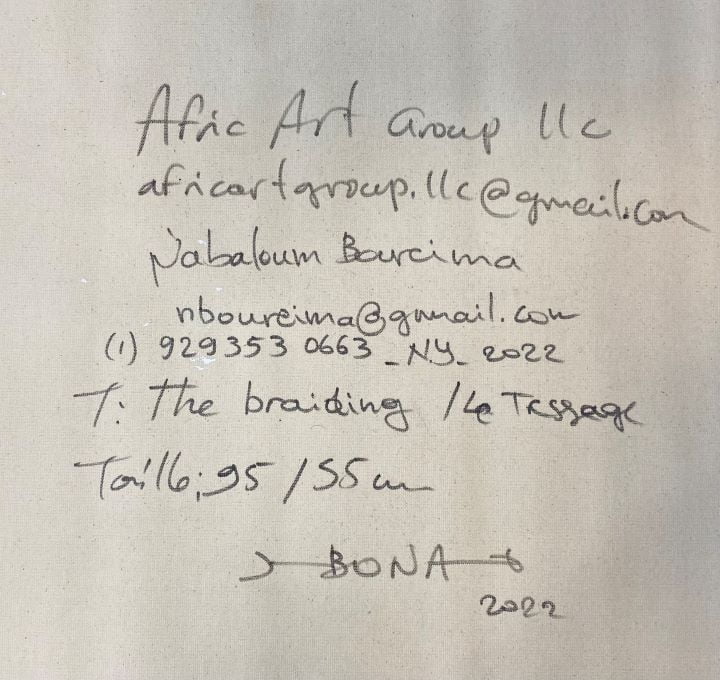 Afric Art Group llc
africartgroup.llc@gmail.com
Nabaloum Boureima
nboureima@gmail.com
(1) 929353 0663 _ NY_ 2022
T: The braiding / Le Tressage
Taille: 95 / 55 cm
BONA
2022